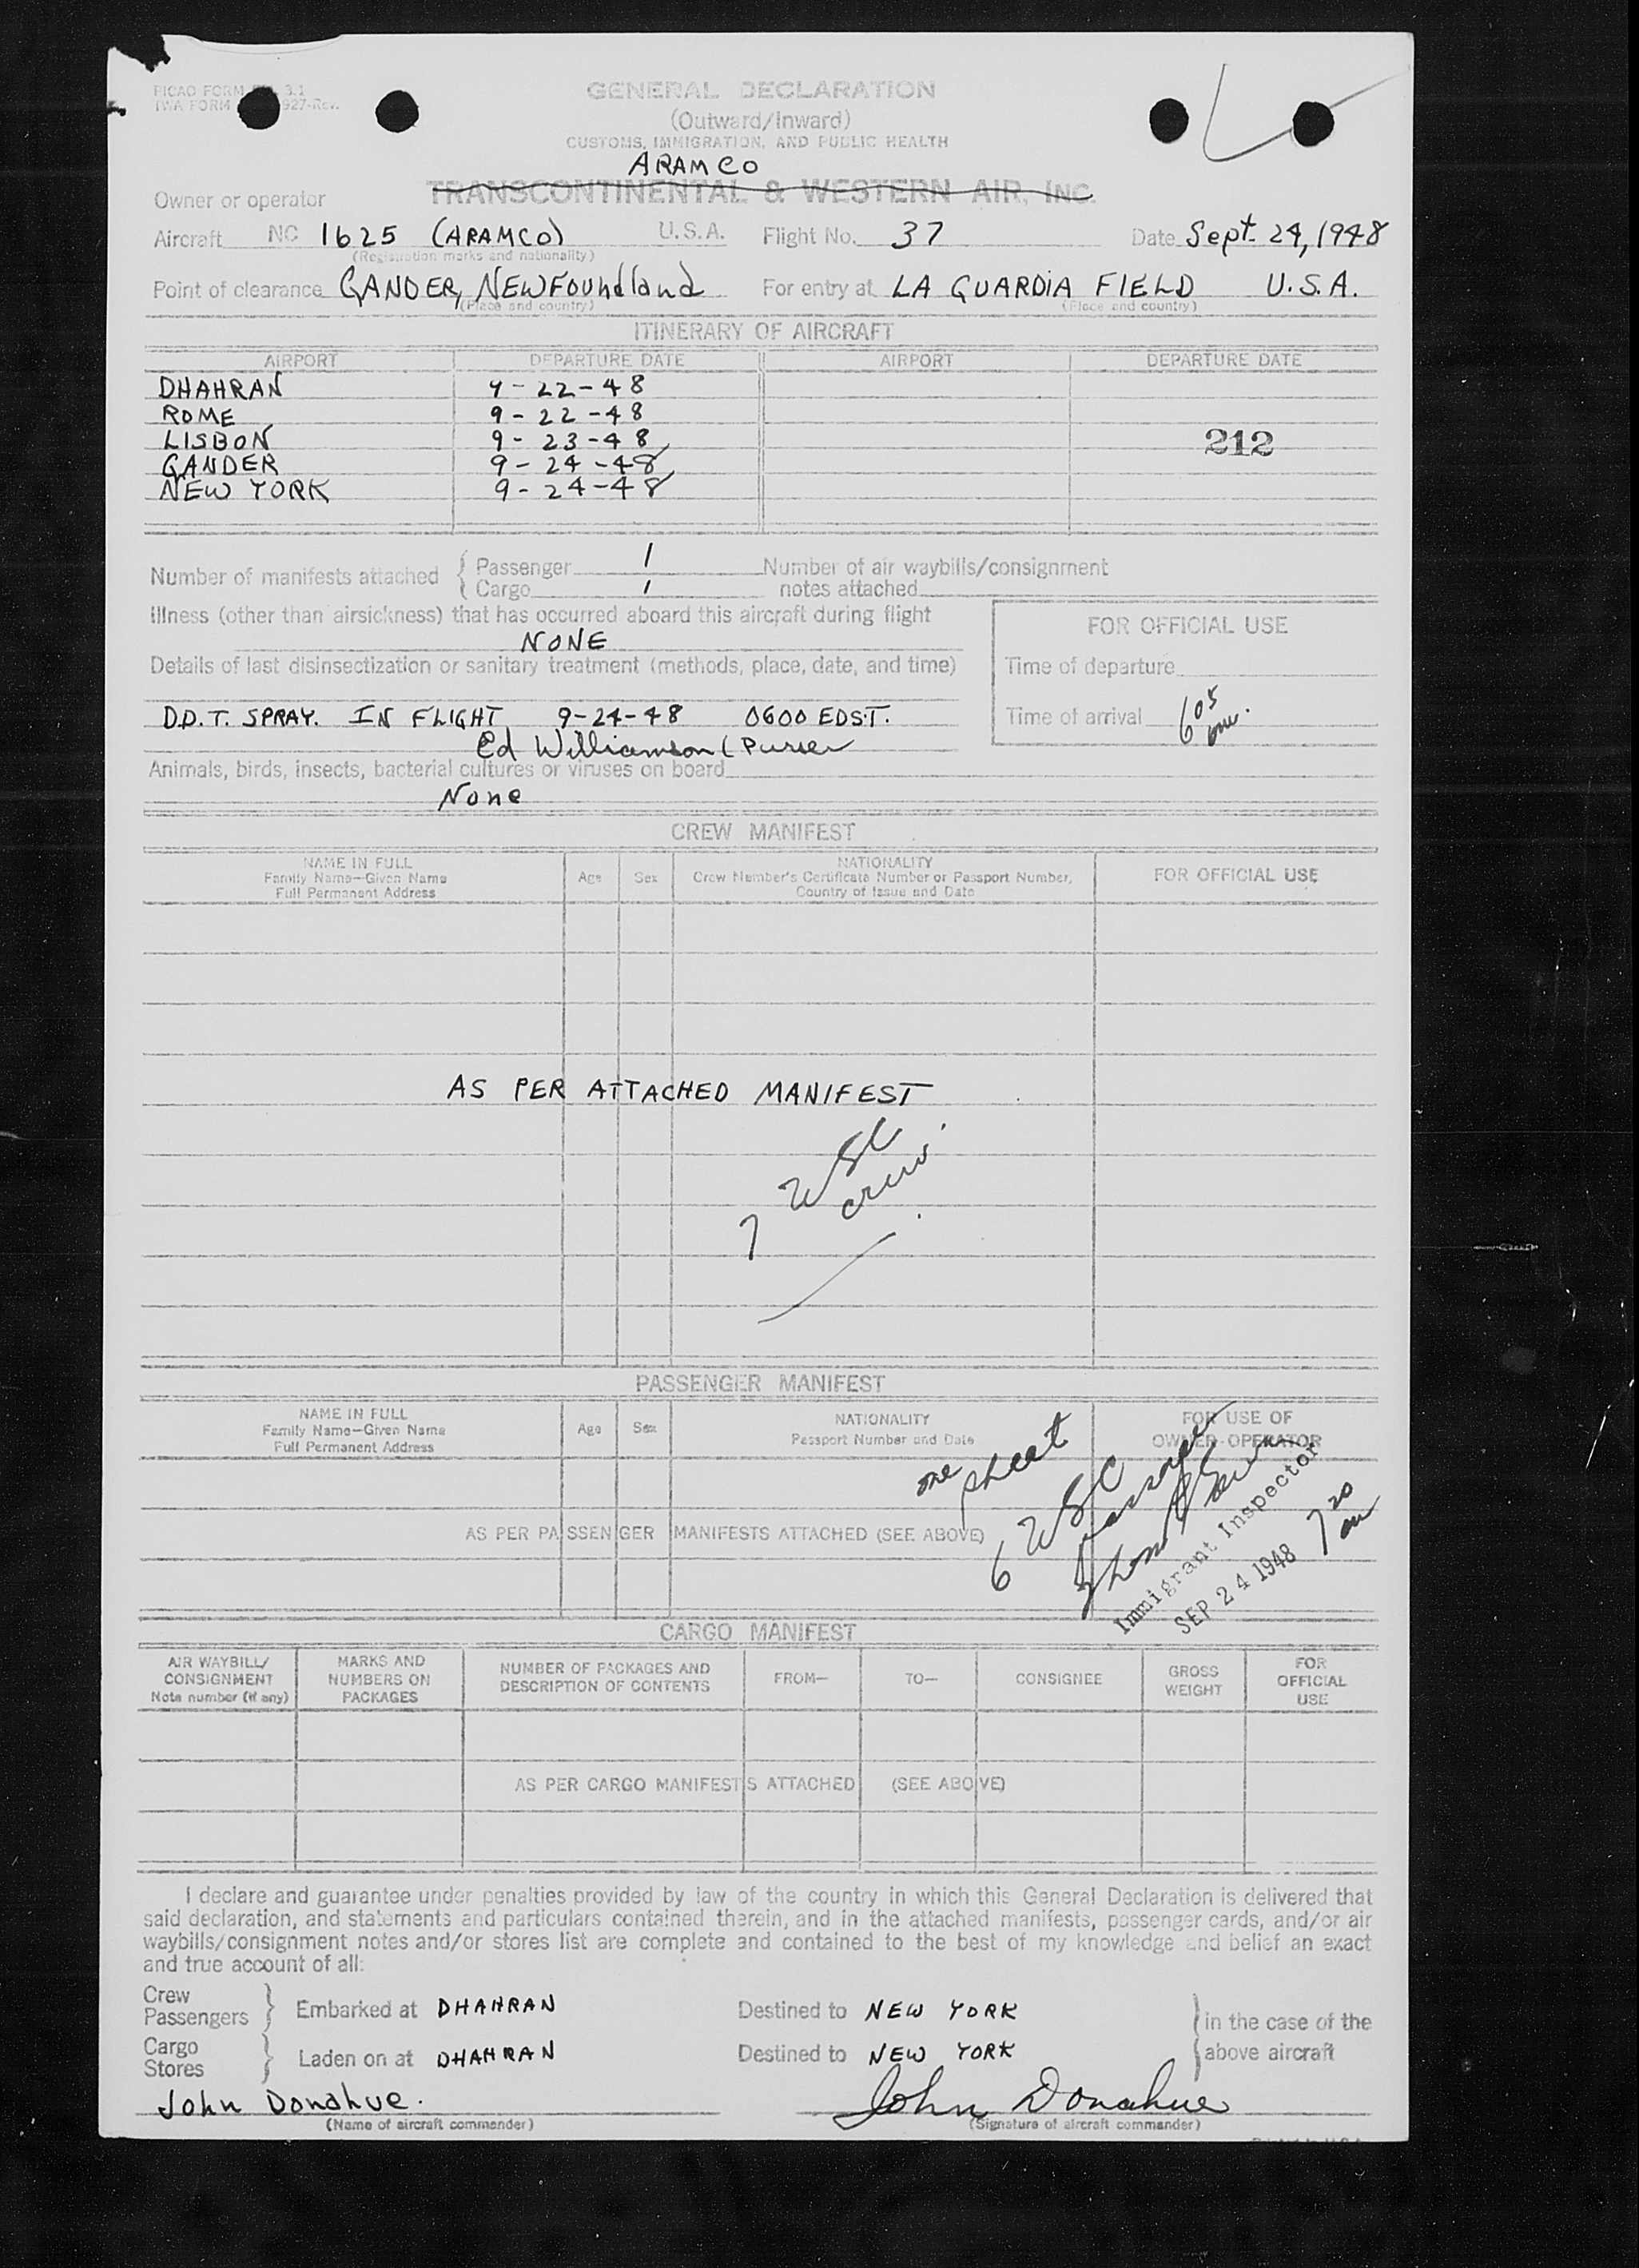 PICAO FORM 3.1
TWA FORM 927-Rev.
GENERAL DECLARATION
(Outward/Inward)
CUSTOMS, IMMIGRATION, AND PUBLIC HEALTH
ARAMCO
Owner or operator TRANSCONTINENTAL & WESTERN AIR, INC.
Aircraft NC 1625 (ARAMCO) U.S.A. Flight No. 37 Date Sept. 24, 1948
(Registration marks and nationality)
Point of clearance GANDER, NEWFOUNdland For entry at LA GUARDIA FIELD U.S.A.
(Place and country) (Place and country)
ITINERARY OF AIRCRAFT
AIRPORT DEPARTURE DATE AIRPORT DEPARTURE DATE
DHAHRAN 9-22-48
ROME 9-22-48
LISBON 9-23-48 212
GANDER 9-24-48
NEW YORK 9-24-48
Number of manifests attached { Passenger 1 Number of air waybills/consignment
{ Cargo 1 notes attached
Illness (other than airsickness) that has occurred aboard this aircraft during flight
NONE
FOR OFFICIAL USE
Details of last disinsectization or sanitary treatment (methods, place, date, and time)
Time of departure
D.D.T. SPRAY. IN FLIGHT 9-24-48 0600 EDS.T.
Time of arrival 605 am.
Ed Williamson (Purser
Animals, birds, insects, bacterial cultures or viruses on board
None
CREW MANIFEST
NAME IN FULL Age Sex NATIONALITY FOR OFFICIAL USE
Family Name—Given Name Crew Member's Certificate Number or Passport Number,
Full Permanent Address Country of Issue and Date
AS PER ATTACHED MANIFEST
7 USC crew.
PASSENGER MANIFEST
NAME IN FULL Age Sex NATIONALITY FOR USE OF
Family Name—Given Name Passport Number and Date OWNER-OPERATOR
Full Permanent Address
one sheet
AS PER PASSENGER MANIFESTS ATTACHED (SEE ABOVE)
6 USC passenger
Immigrant Inspector
SEP 24 1948
720 am
CARGO MANIFEST
AIR WAYBILL/ MARKS AND NUMBER OF PACKAGES AND FROM— TO— CONSIGNEE GROSS FOR
CONSIGNMENT NUMBERS ON DESCRIPTION OF CONTENTS WEIGHT OFFICIAL
Note number (if any) PACKAGES USE
AS PER CARGO MANIFESTS ATTACHED (SEE ABOVE)
I declare and guarantee under penalties provided by law of the country in which this General Declaration is delivered that
said declaration, and statements and particulars contained therein, and in the attached manifests, passenger cards, and/or air
waybills/consignment notes and/or stores list are complete and contained to the best of my knowledge and belief an exact
and true account of all:
Crew
Passengers } Embarked at DHAHRAN Destined to NEW YORK } in the case of the
Cargo
Stores } Laden on at DHAHRAN Destined to NEW YORK } above aircraft
John Donahue. John Donahue
(Name of aircraft commander) (Signature of aircraft commander)